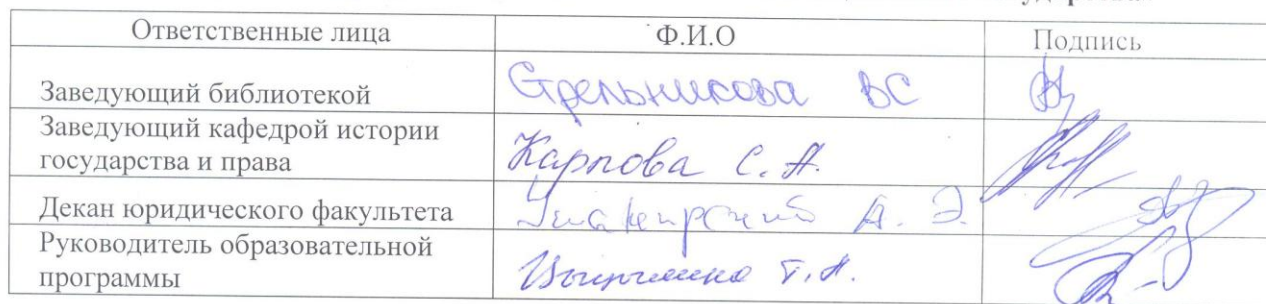 Ответственные лица Ф.И.О Подпись
Заведующий библиотекой Стрельникова ВС
Заведующий кафедрой истории
государства и права Карпова С.А.
Декан юридического факультета А. Э.
Руководитель образовательной
программы Т.А.